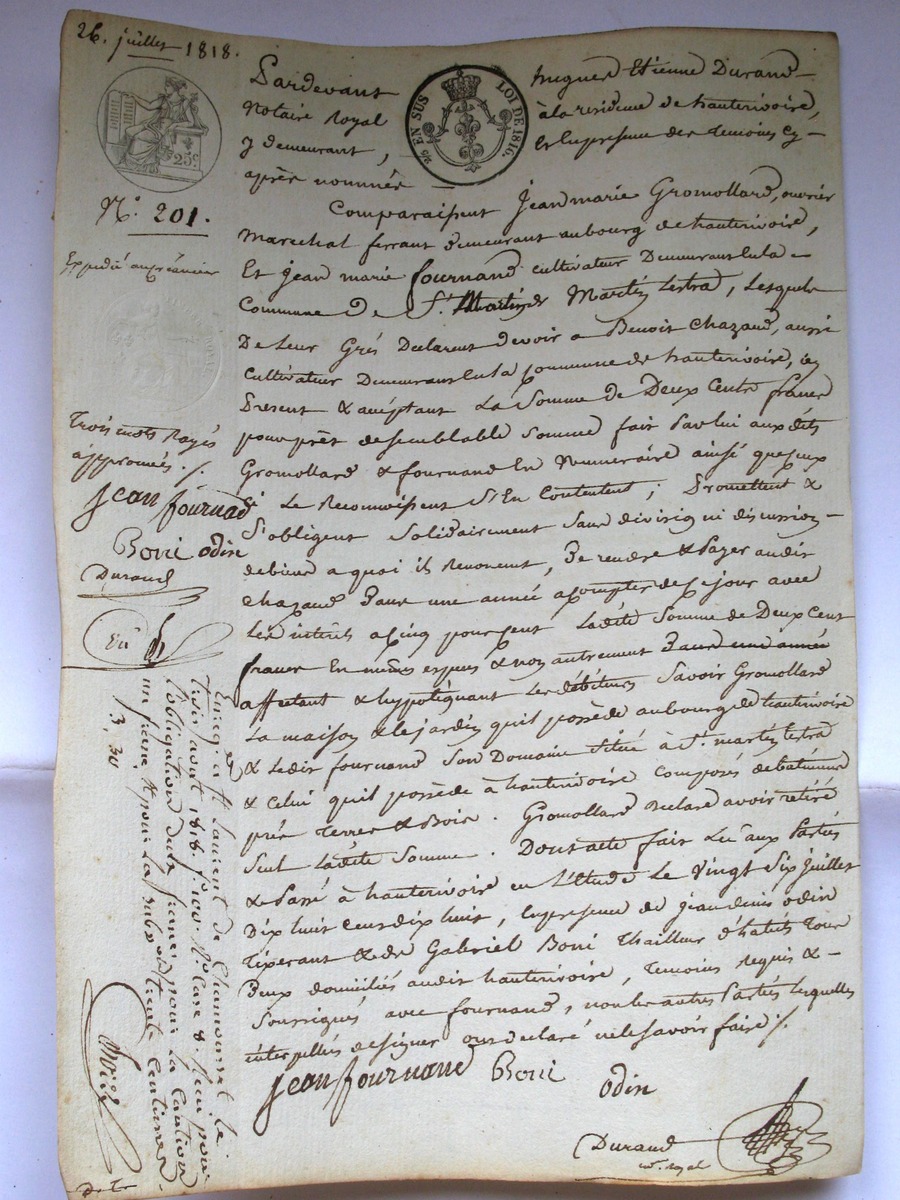 26. juillet 1818.
Pardevant hugues Etienne Durand
Notaire Royal à la residence de hauterivoire,
y demeurant, En la presence des temoins cy
après nommés
EN SUS LOI DE 1816.
25c.
N.º 201.
Comparaissent Jean marie Gromollard, ouvrier
Marechal ferrant demeurant au bourg de hauterivoire,
Et jean marie fournand cultivateur Demeurant En la
Commune De St. Martin Lestra, Lesquels
De Leur Grés Declarent devoir a Benoit Chazaud, aussi
Cultivateur Demeurant En la Commune de hauterivoire, icy
Present & acceptant La Somme de Deux Cents francs
pour prêt de semblable Somme fait Par lui aux dits
Gromollard & fournand En Numeraire ainsi que eux
Le Reconnoissent S'En Contentent; Promettent &
S'obligent Solidairement Sans division ni discussion
de biens a quoi ils Renoncent, De rendre & Payer audit
Chazaud Dans une année a compter de ce jour avec
Les interets a Cinq pour Cent Ladite Somme de Deux Cent
francs En mêmes especes & non autrement Dans une année
affectant & hyppotéquant Les débiteurs Savoir Gromollard
La maison & le jardin quil possède au bourg de hauterivoire
& Ledit fournand Son Domaine Situé à St. martin Lestra
& Celui quil possède à hauterivoire Composés de batimens
prés Terres & Bois. Gromollard Declare avoir retiré
Seul Ladite Somme. Dont acte fait Lu aux Parties
& Passé à hauterivoire en L'Etude Le Vingt Six juillet
Dix huit Cent dix huit, En presence de jean denis odin
Tixerant & de Gabriel Boni Thailleur d'habits Tous
Deux domiciliés audit hauterivoire, Temoins Requis &
Soussignés avec fournand, non les autres Parties Lesquelles
interpellées de signer ont declaré ne le savoir faire ./.
jean fournand Boni
odin
Durand
not. royal
Expedié au créancier
Trois mots Rayés
approuvés ./.
jean fournand
Boni odin
Durand
Enreg. à St Laurent de Chamousset le
août 1818. fº Rº Case 8. Reçu pour
L'obligation deux francs pour La Caution
un franc & pour La Subvon trente Centimes
3, 30